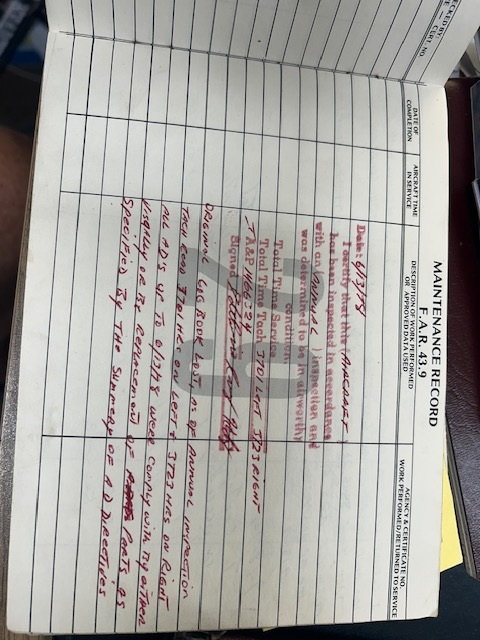 ECKED BY:
CERT. NO.
MAINTENANCE RECORD
F.A.R. 43.9
DATE OF
COMPLETION
AIRCRAFT TIME
IN SERVICE
DESCRIPTION OF WORK PERFORMED
OR APPROVED DATA USED
AGENCY & CERTIFICATE NO.
WORK PERFORMED/RETURNED TO SERVICE
Date: 6/13/78
I certify that this AIRCRAFT
has been inspected in accordance
with an (ANNUAL) inspection and
was determined to be in airworthy
condition.
Total Time Service
Total Time Tach 3701 LEFT 3723 RIGHT
A&P
Signed
ORIGINAL LOG BOOK LOST, AS OF ANNUAL INSPECTION
TACH READ 3701 HRS ON LEFT & 3723 HRS ON RIGHT
ALL AD'S UP TO 6/13/78 WERE COMPLY WITH BY EITHER
VISUALLY OR BY REPLACEMENT OF PARTS AS
SPECIFIED BY THE SUMMERY OF AD DIRECTIVES